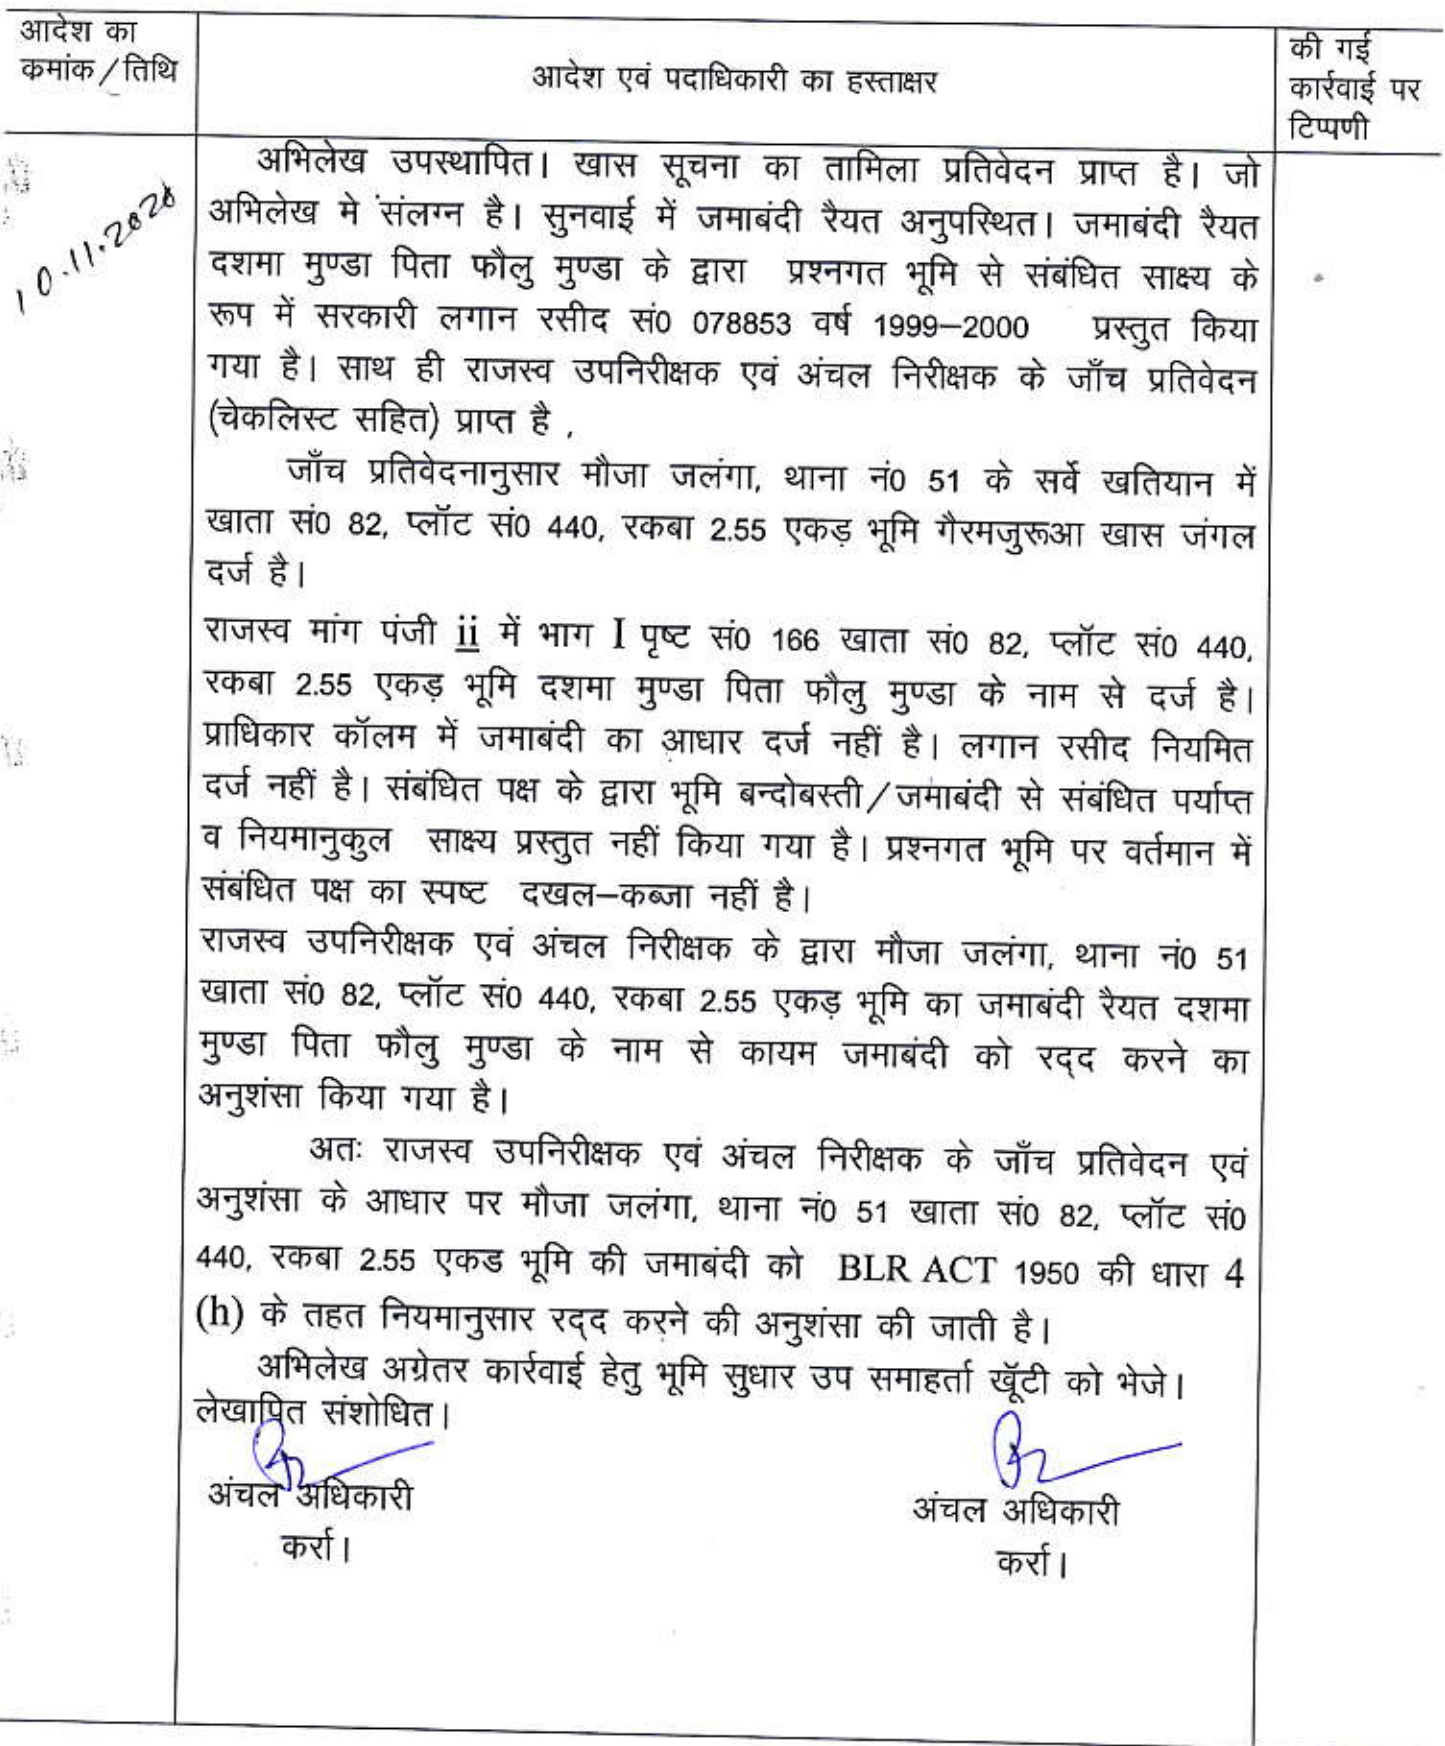 आदेश का
कमांक/तिथि
आदेश एवं पदाधिकारी का हस्ताक्षर
की गई
कार्रवाई पर
टिप्पणी
10.11.2020
अभिलेख उपस्थापित। खास सूचना का तामिला प्रतिवेदन प्राप्त है। जो
अभिलेख मे संलग्न है। सुनवाई में जमाबंदी रैयत अनुपस्थित। जमाबंदी रैयत
दशमा मुण्डा पिता फौलु मुण्डा के द्वारा प्रश्नगत भूमि से संबंधित साक्ष्य के
रूप में सरकारी लगान रसीद सं0 078853 वर्ष 1999–2000 प्रस्तुत किया
गया है। साथ ही राजस्व उपनिरीक्षक एवं अंचल निरीक्षक के जाँच प्रतिवेदन
(चेकलिस्ट सहित) प्राप्त है ,
जाँच प्रतिवेदनानुसार मौजा जलंगा, थाना नं0 51 के सर्वे खतियान में
खाता सं0 82, प्लॉट सं0 440, रकबा 2.55 एकड़ भूमि गैरमजुरूआ खास जंगल
दर्ज है।
राजस्व मांग पंजी ii में भाग I पृष्ट सं0 166 खाता सं0 82, प्लॉट सं0 440,
रकबा 2.55 एकड़ भूमि दशमा मुण्डा पिता फौलु मुण्डा के नाम से दर्ज है।
प्राधिकार कॉलम में जमाबंदी का आधार दर्ज नहीं है। लगान रसीद नियमित
दर्ज नहीं है। संबंधित पक्ष के द्वारा भूमि बन्दोबस्ती/जमाबंदी से संबंधित पर्याप्त
व नियमानुकुल साक्ष्य प्रस्तुत नहीं किया गया है। प्रश्नगत भूमि पर वर्तमान में
संबंधित पक्ष का स्पष्ट दखल–कब्जा नहीं है।
राजस्व उपनिरीक्षक एवं अंचल निरीक्षक के द्वारा मौजा जलंगा, थाना नं0 51
खाता सं0 82, प्लॉट सं0 440, रकबा 2.55 एकड़ भूमि का जमाबंदी रैयत दशमा
मुण्डा पिता फौलु मुण्डा के नाम से कायम जमाबंदी को रद्द करने का
अनुशंसा किया गया है।
अतः राजस्व उपनिरीक्षक एवं अंचल निरीक्षक के जाँच प्रतिवेदन एवं
अनुशंसा के आधार पर मौजा जलंगा, थाना नं0 51 खाता सं0 82, प्लॉट सं0
440, रकबा 2.55 एकड भूमि की जमाबंदी को BLR ACT 1950 की धारा 4
(h) के तहत नियमानुसार रद्द करने की अनुशंसा की जाती है।
अभिलेख अग्रेतर कार्रवाई हेतु भूमि सुधार उप समाहर्ता खूँटी को भेजे।
लेखापित संशोधित।
अंचल अधिकारी
कर्रा।
अंचल अधिकारी
कर्रा।